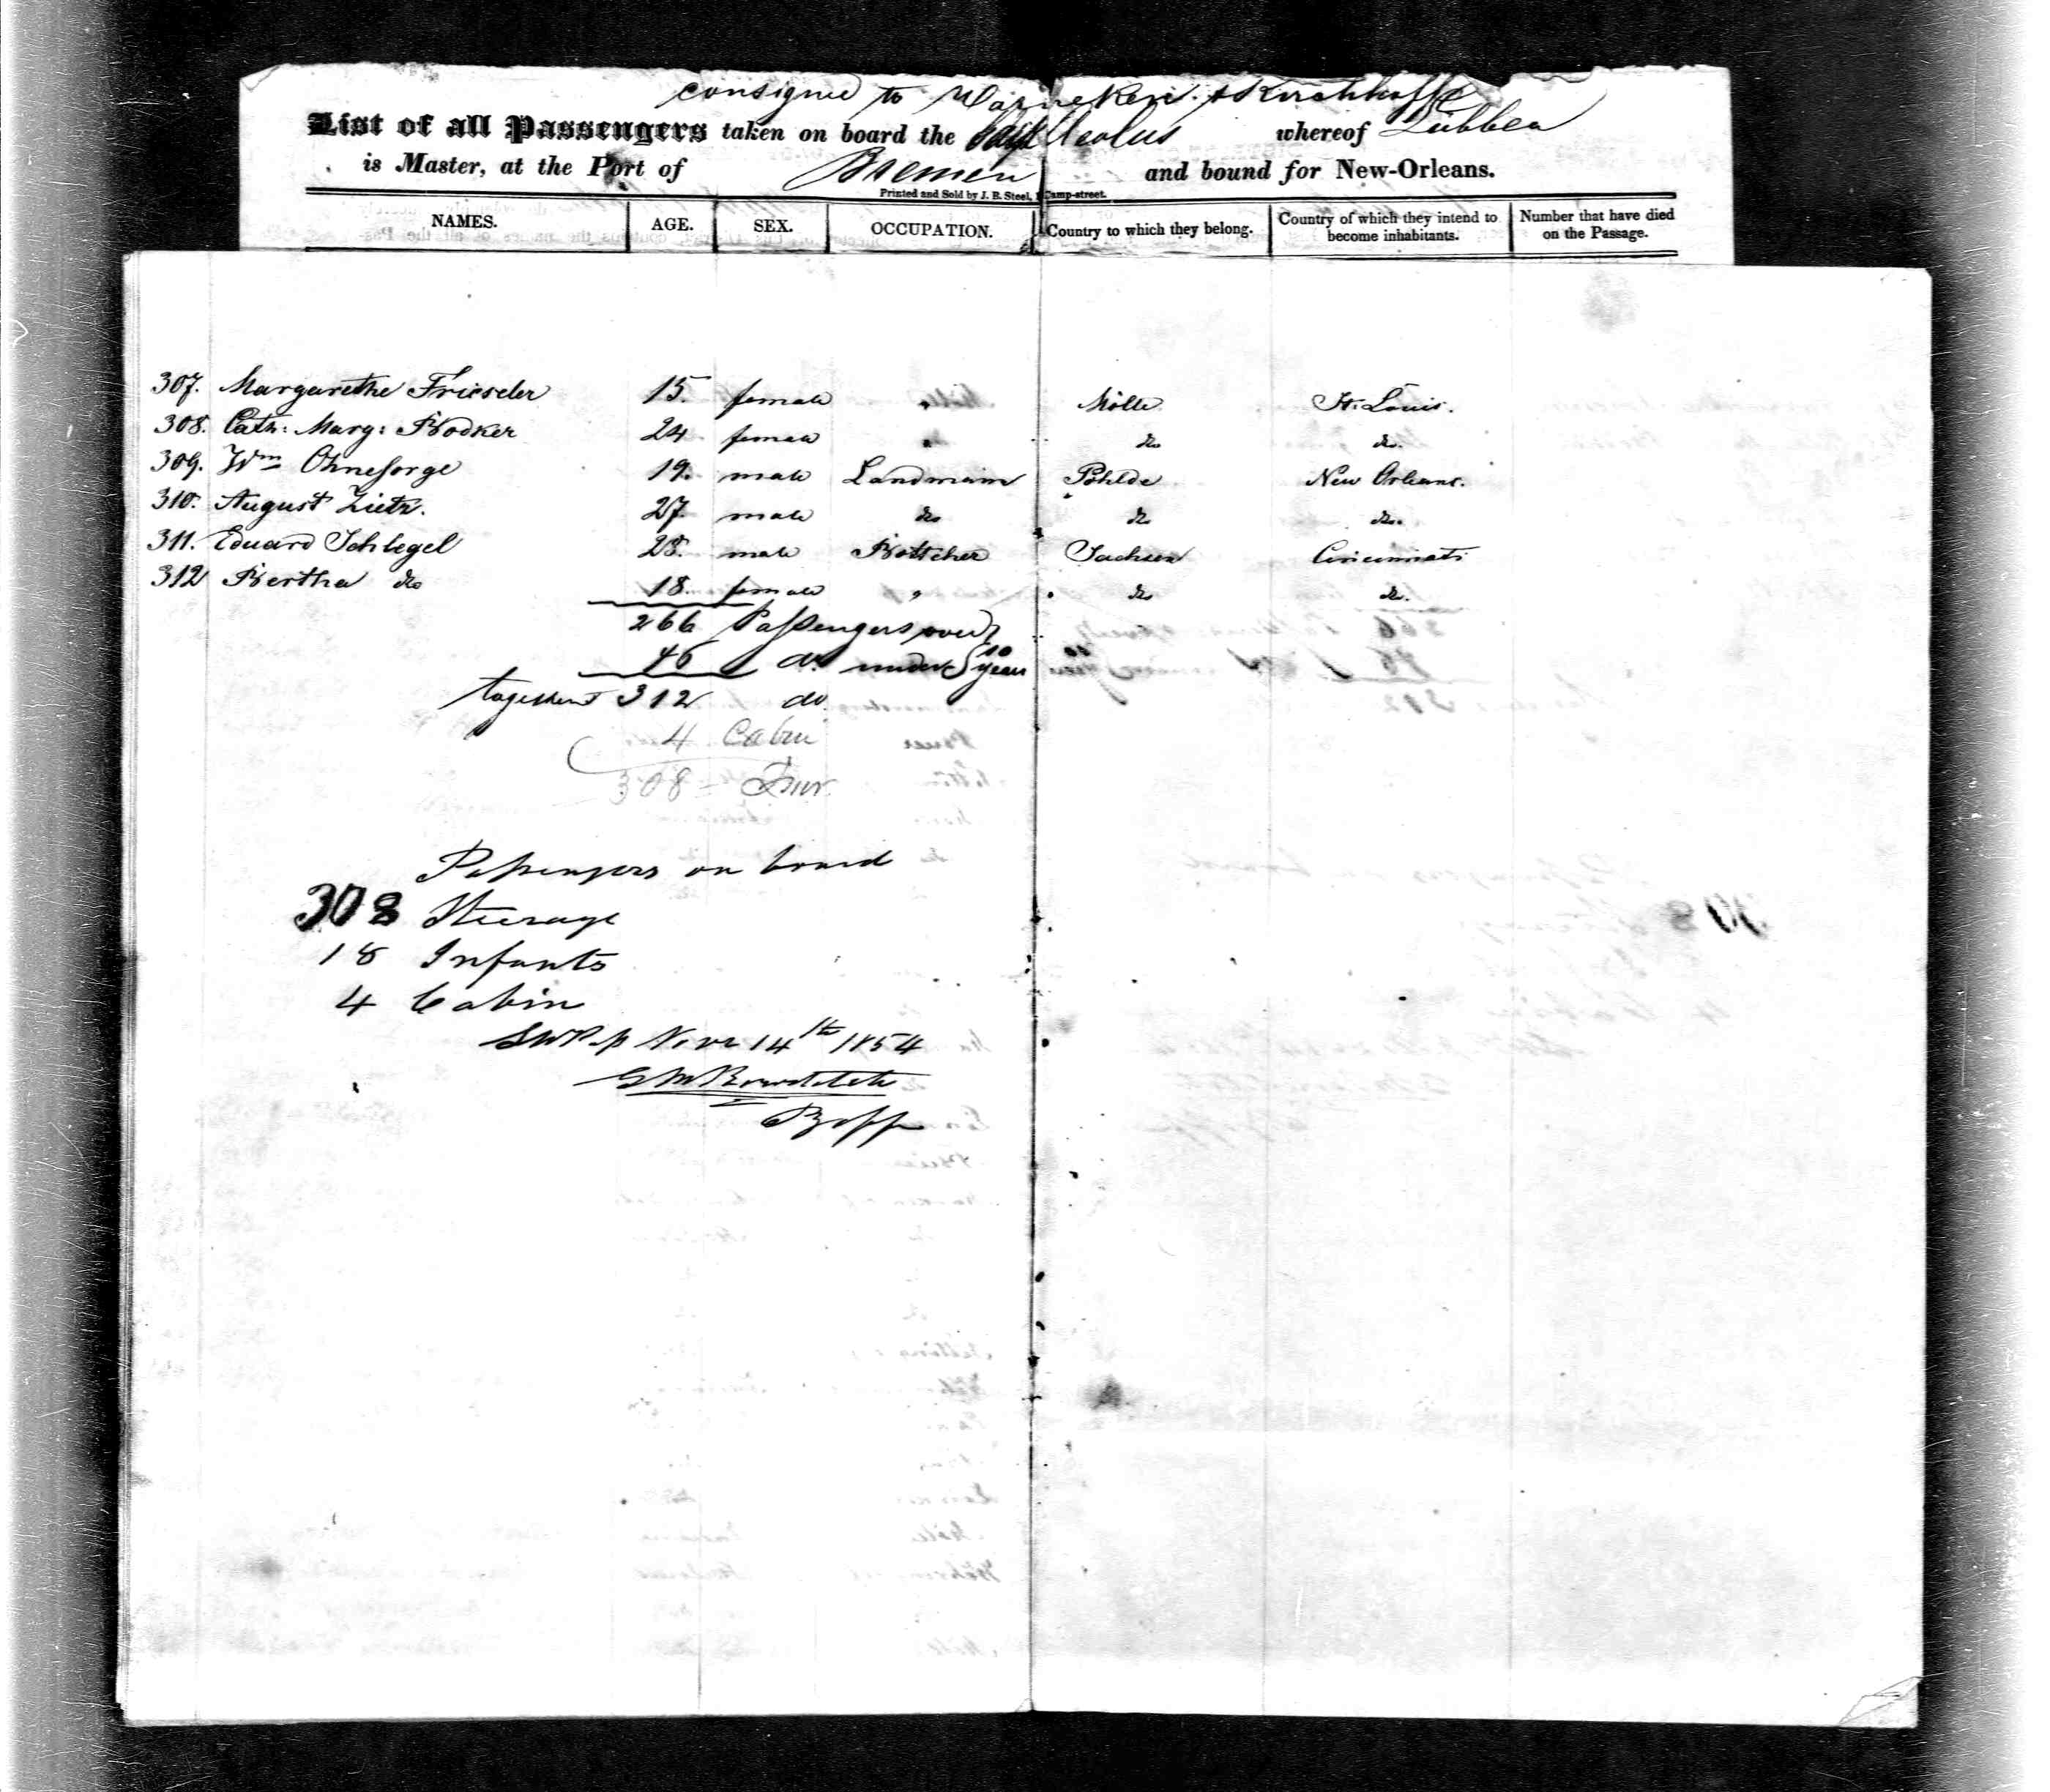 consigned to Warneken & Kirchhoff
List of all Passengers taken on board the Ship Aeolus whereof Lübben
is Master, at the Port of Bremen and bound for New-Orleans.
Printed and Sold by J. B. Steel, Camp-street.
NAMES. AGE. SEX. OCCUPATION. Country to which they belong. Country of which they intend to become inhabitants. Number that have died on the Passage.
307. Margarethe Frieseler 15. female " Mölle St. Louis.
308. Cath: Marg: Bödker 24 female " do do.
309. Wm Ohnesorge 19. male Landmann Pöhlde New Orleans.
310. August Zietz. 27. male do do do.
311. Eduard Schlegel 28. male Böttcher Sachsen Cincinnati
312 Bertha do 18. female " do do.
266 Passengers over } 10
46 do. under } years
together 312 do
4 Cabin
308 =
Passengers on board
308 Steerage
18 Infants
4 Cabin
SWP Novr 14th 1854